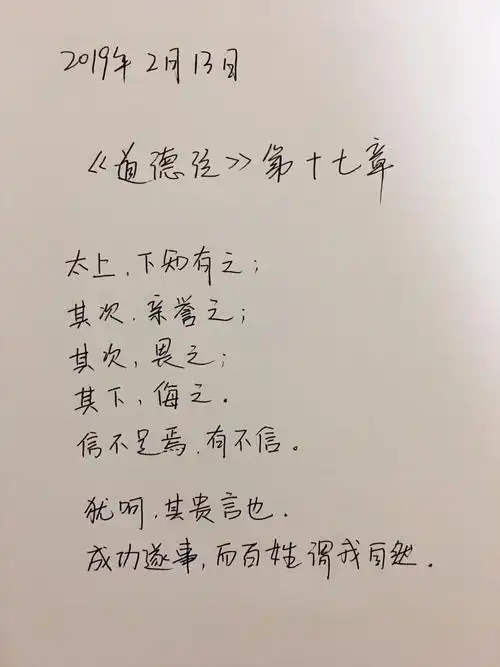 2019年2月13日
《道德经》第十七章
太上,下知有之;
其次,亲誉之;
其次,畏之;
其下,侮之.
信不足焉,有不信。
犹呵,其贵言也.
成功遂事,而百姓谓我自然.